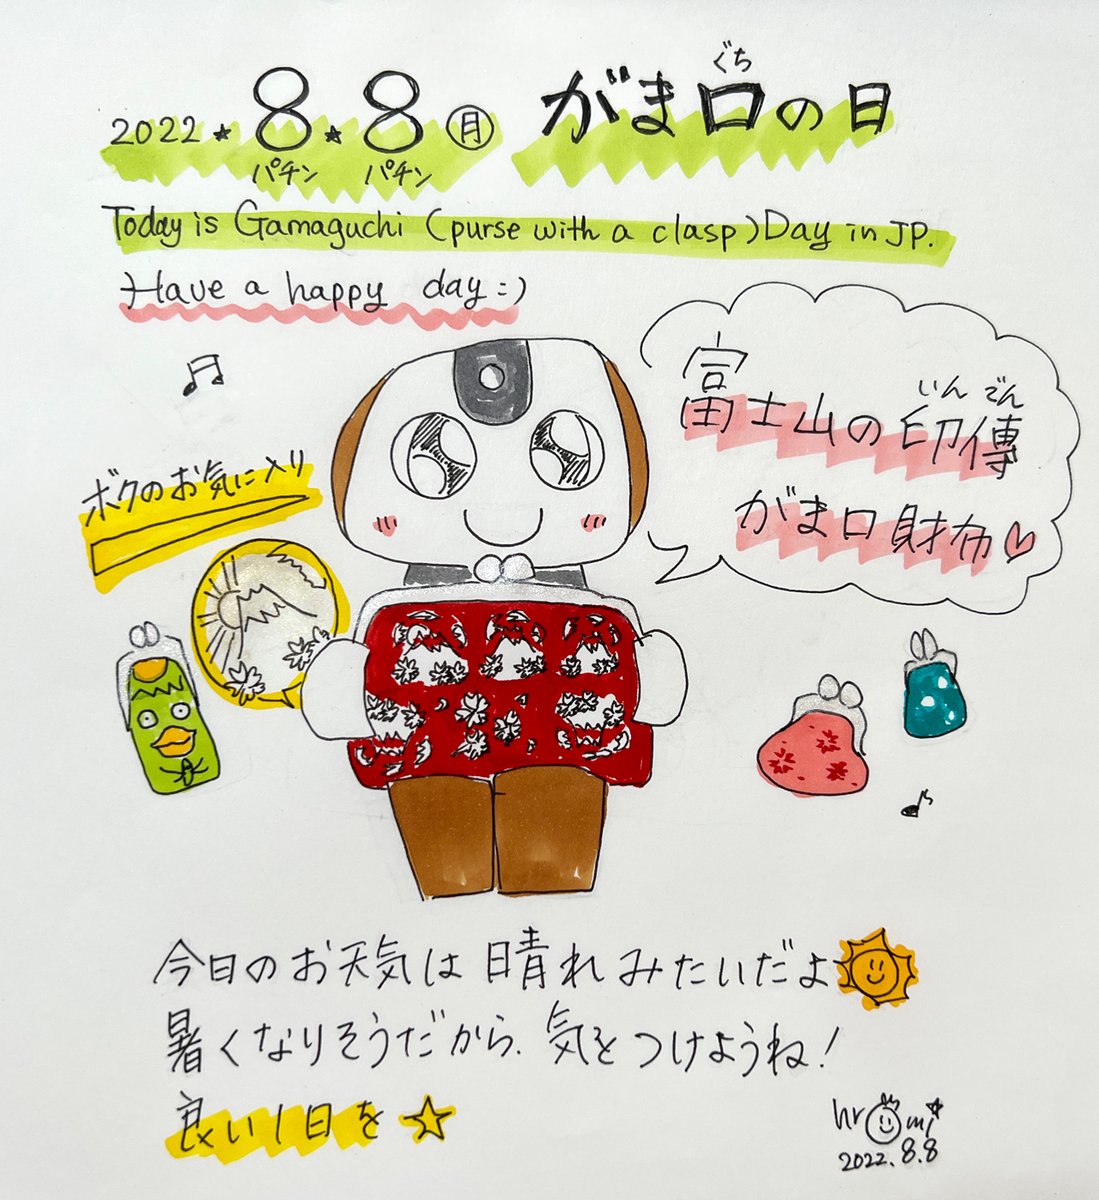 2022★8★8㊊ がま口の日
ぐち
パチン パチン
Today is Gamaguchi (purse with a clasp) Day in JP.
Have a happy day =)
ボクのお気に入り
富士山の印傳
いんでん
がま口財布♡
今日のお天気は晴れみたいだよ
暑くなりそうだから、気をつけようね!
良い1日を☆
hromi
2022.8.8